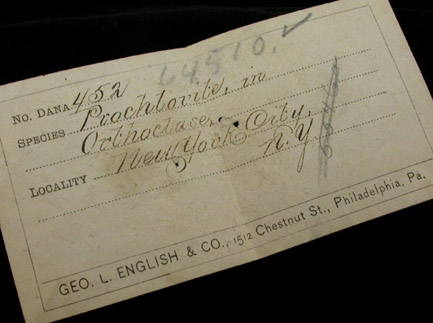 64510. ✓
No. DANA 452
SPECIES Prochlorite, in
Orthoclase.
LOCALITY New York City,
N.Y
GEO. L. ENGLISH & CO., 1512 Chestnut St., Philadelphia, Pa.